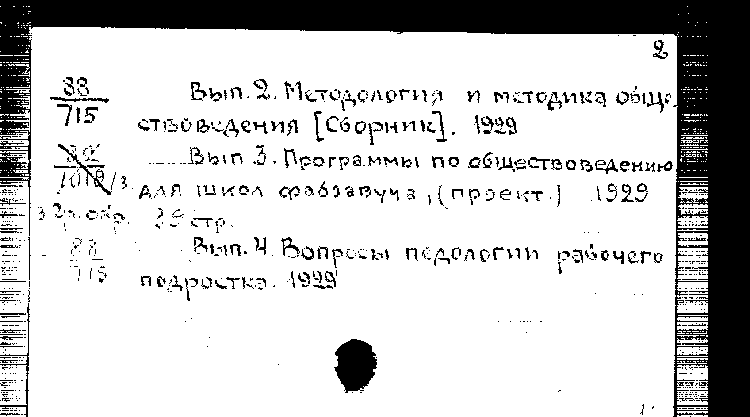 2
88 Вып. 2. Методология и методика обще-
715 ствоведения [Сборник]. 1929
Вып 3. Программы по обществоведению
1010/3. для школ фабзавуча, (проект.) 1929
35 стр.
88 Вып. 4. Вопросы педологии рабочего
715 подростка. 1929